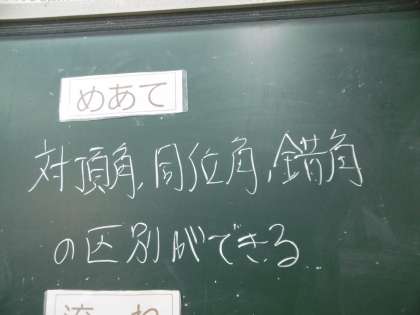 めあて
対頂角,同位角,錯角
の区別ができる
流れ